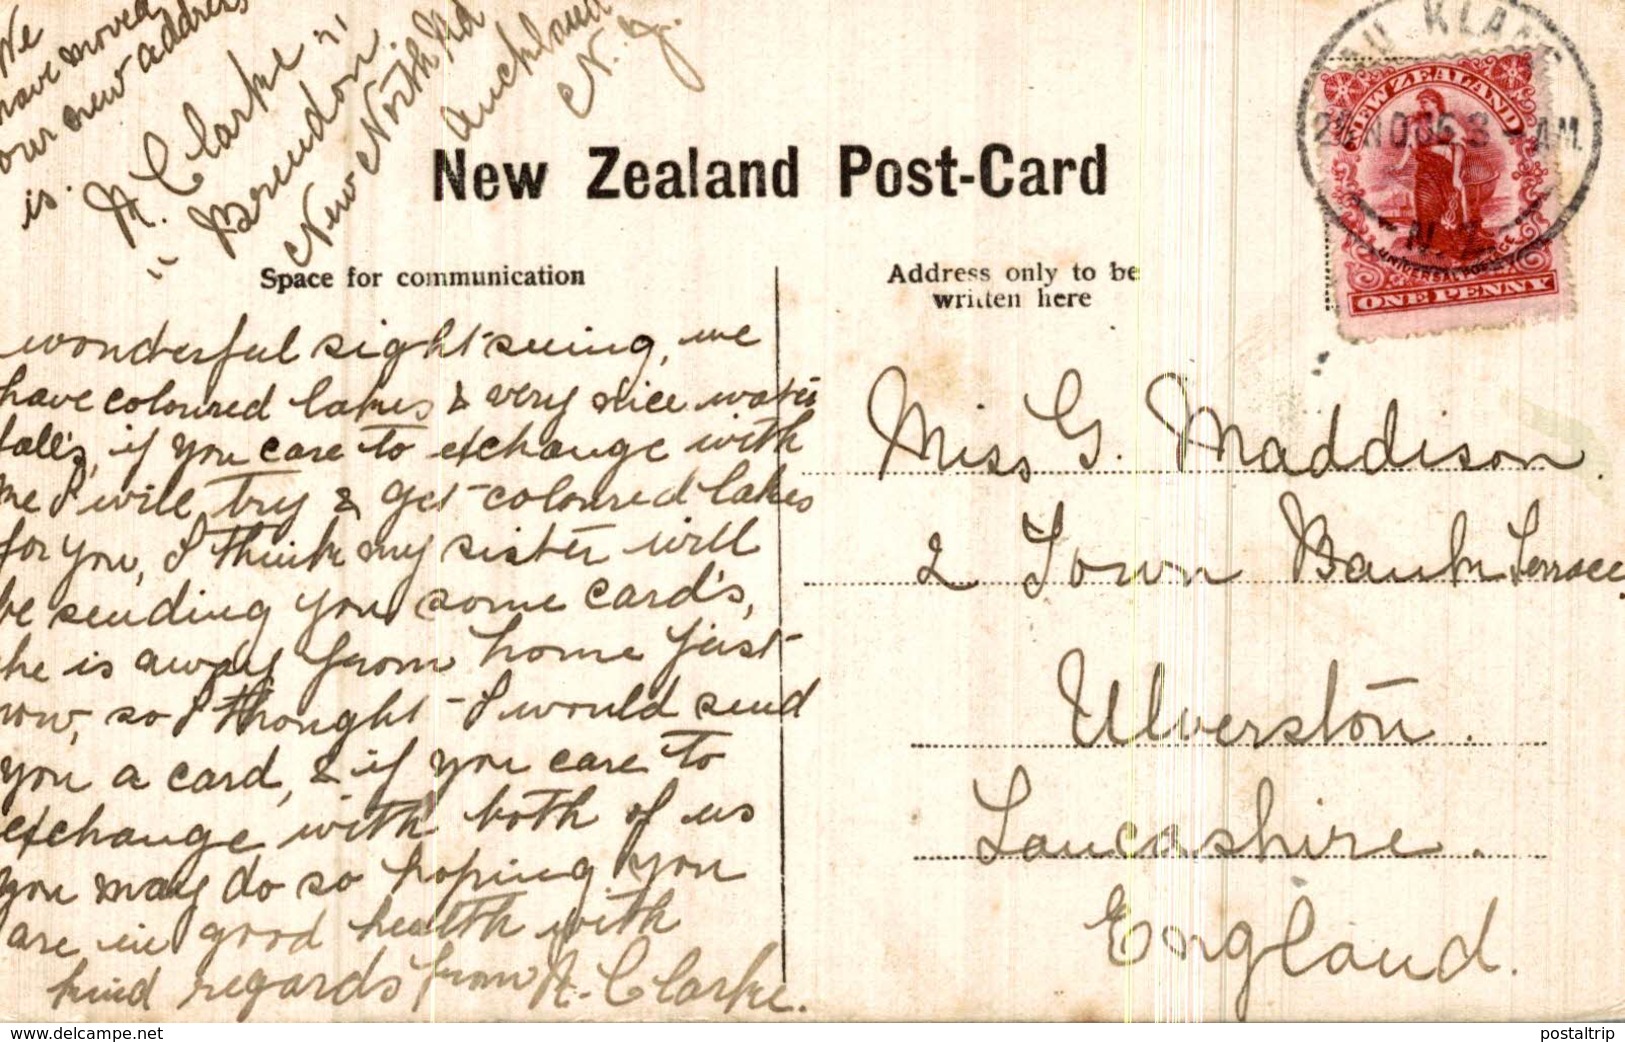 We
have moved
our new address
is.
M. Clarke
"Brendon"
New North Rd
Auckland
N.Z.
New Zealand Post-Card
Space for communication
Address only to be
written here
AUCKLAND
NO 06 8 - AM
N.Z.
NEW ZEALAND
UNIVERSAL POSTAGE
ONE PENNY
wonderful sight seeing, we
have coloured lakes & very nice water
falls, if you care to exchange with
me I will try & get coloured lakes
for you, I think my sister will
be sending you some card's,
she is away from home just
now, so I thought I would send
you a card, & if you care to
exchange with both of us
you may do so hoping you
are in good health with
kind regards from A. Clarke.
Miss G. Maddison.
2 Town Bank Terrace
Ulverston.
Lancashire.
England.
www.delcampe.net
postaltrip